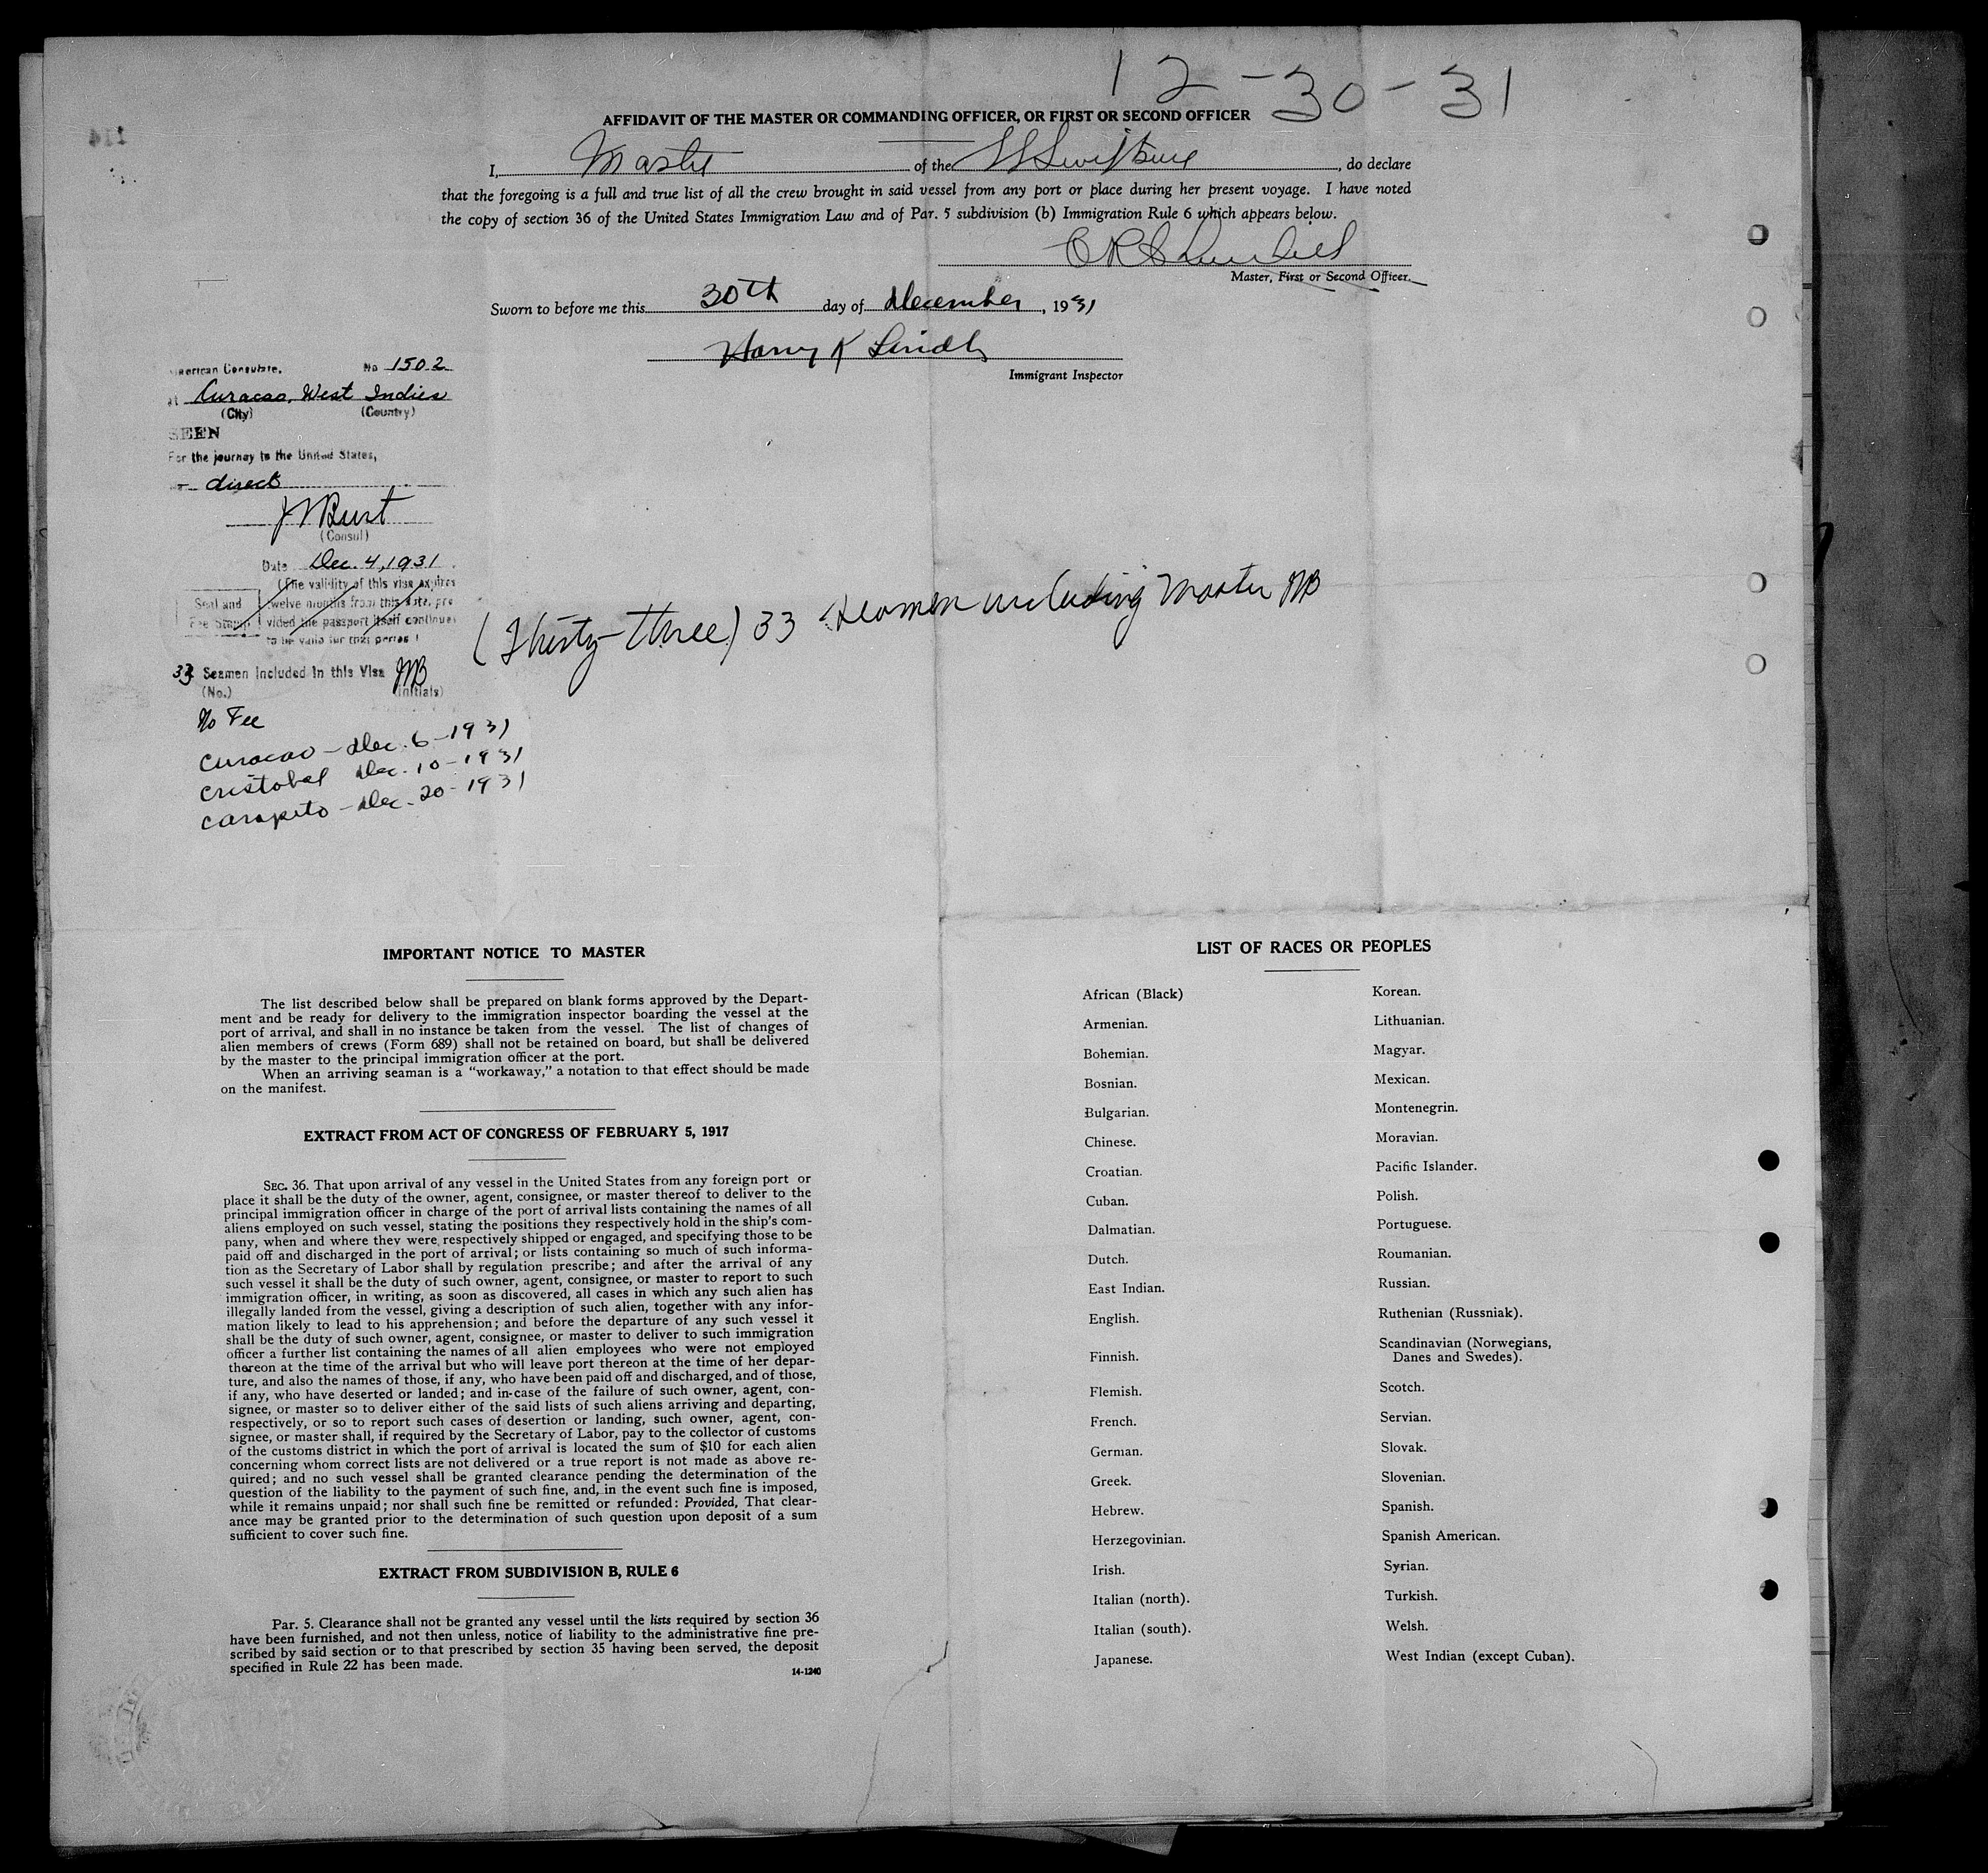 12-30-31
AFFIDAVIT OF THE MASTER OR COMMANDING OFFICER, OR FIRST OR SECOND OFFICER
I, Master of the SS Swiftsure, do declare
that the foregoing is a full and true list of all the crew brought in said vessel from any port or place during her present voyage. I have noted
the copy of section 36 of the United States Immigration Law and of Par. 5 subdivision (b) Immigration Rule 6 which appears below.
Master, First or Second Officer.
Sworn to before me this 30th day of December, 1931
Harry K
Immigrant Inspector
114
American Consulate, No 1502
at Curacao, West Indies
(City) (Country)
SEEN
For the journey to the United States,
direct
J M Burt
(Consul)
Date Dec. 4, 1931
(The validity of this visa expires
Seal and twelve months from this date, pro
Fee Stamp vided the passport itself continues
to be valid for that period)
33 Seamen included in this Visa JMB
(No.) (Initials)
(Thirty-three) 33 Seamen including Master JMB
No Fee
Curacao - Dec. 6 - 1931
Cristobal Dec. 10 - 1931
Caripito - Dec. 20 - 1931
IMPORTANT NOTICE TO MASTER
The list described below shall be prepared on blank forms approved by the Depart-
ment and be ready for delivery to the immigration inspector boarding the vessel at the
port of arrival, and shall in no instance be taken from the vessel. The list of changes of
alien members of crews (Form 689) shall not be retained on board, but shall be delivered
by the master to the principal immigration officer at the port.
When an arriving seaman is a “workaway,” a notation to that effect should be made
on the manifest.
EXTRACT FROM ACT OF CONGRESS OF FEBRUARY 5, 1917
SEC. 36. That upon arrival of any vessel in the United States from any foreign port or
place it shall be the duty of the owner, agent, consignee, or master thereof to deliver to the
principal immigration officer in charge of the port of arrival lists containing the names of all
aliens employed on such vessel, stating the positions they respectively hold in the ship's com-
pany, when and where they were respectively shipped or engaged, and specifying those to be
paid off and discharged in the port of arrival; or lists containing so much of such informa-
tion as the Secretary of Labor shall by regulation prescribe; and after the arrival of any
such vessel it shall be the duty of such owner, agent, consignee, or master to report to such
immigration officer, in writing, as soon as discovered, all cases in which any such alien has
illegally landed from the vessel, giving a description of such alien, together with any infor-
mation likely to lead to his apprehension; and before the departure of any such vessel it
shall be the duty of such owner, agent, consignee, or master to deliver to such immigration
officer a further list containing the names of all alien employees who were not employed
thereon at the time of the arrival but who will leave port thereon at the time of her depar-
ture, and also the names of those, if any, who have been paid off and discharged, and of those,
if any, who have deserted or landed; and in case of the failure of such owner, agent, con-
signee, or master so to deliver either of the said lists of such aliens arriving and departing,
respectively, or so to report such cases of desertion or landing, such owner, agent, con-
signee, or master shall, if required by the Secretary of Labor, pay to the collector of customs
of the customs district in which the port of arrival is located the sum of $10 for each alien
concerning whom correct lists are not delivered or a true report is not made as above re-
quired; and no such vessel shall be granted clearance pending the determination of the
question of the liability to the payment of such fine, and, in the event such fine is imposed,
while it remains unpaid; nor shall such fine be remitted or refunded: Provided, That clear-
ance may be granted prior to the determination of such question upon deposit of a sum
sufficient to cover such fine.
EXTRACT FROM SUBDIVISION B, RULE 6
Par. 5. Clearance shall not be granted any vessel until the lists required by section 36
have been furnished, and not then unless, notice of liability to the administrative fine pre-
scribed by said section or to that prescribed by section 35 having been served, the deposit
specified in Rule 22 has been made.
14-1240
LIST OF RACES OR PEOPLES
African (Black)
Armenian.
Bohemian.
Bosnian.
Bulgarian.
Chinese.
Croatian.
Cuban.
Dalmatian.
Dutch.
East Indian.
English.
Finnish.
Flemish.
French.
German.
Greek.
Hebrew.
Herzegovinian.
Irish.
Italian (north).
Italian (south).
Japanese.
Korean.
Lithuanian.
Magyar.
Mexican.
Montenegrin.
Moravian.
Pacific Islander.
Polish.
Portuguese.
Roumanian.
Russian.
Ruthenian (Russniak).
Scandinavian (Norwegians,
Danes and Swedes).
Scotch.
Servian.
Slovak.
Slovenian.
Spanish.
Spanish American.
Syrian.
Turkish.
Welsh.
West Indian (except Cuban).